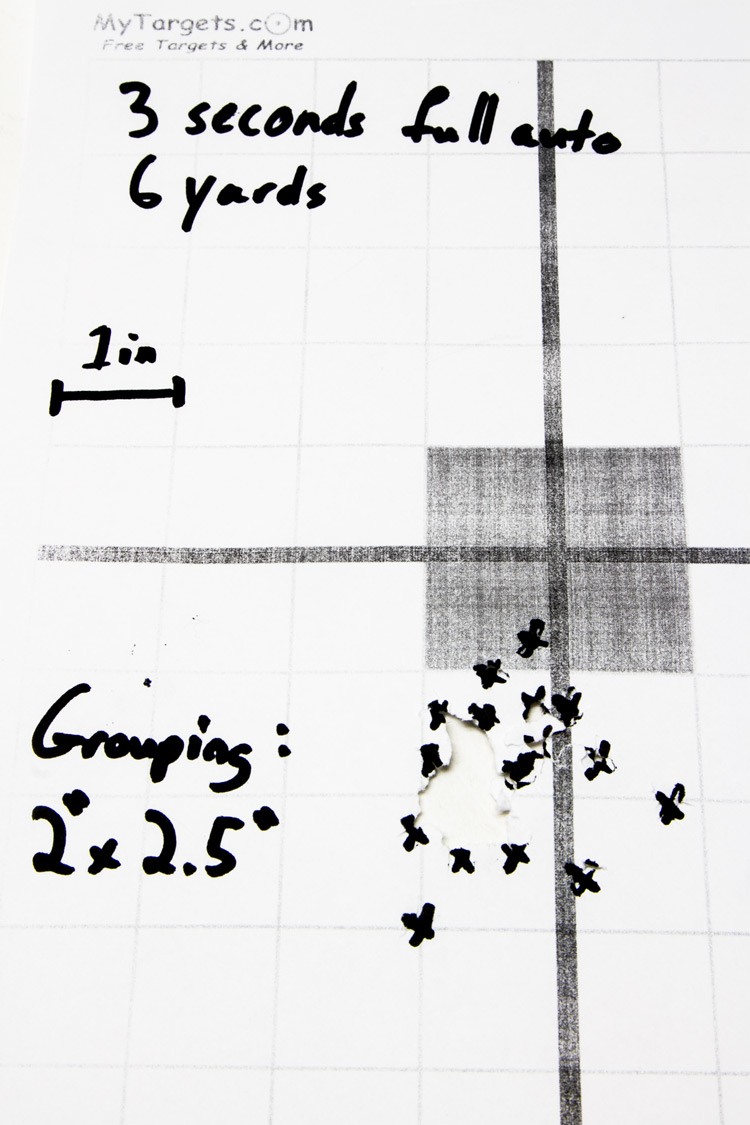 MyTargets.com
Free Targets & More
3 seconds full auto
6 yards
1in
Grouping:
2" x 2.5"